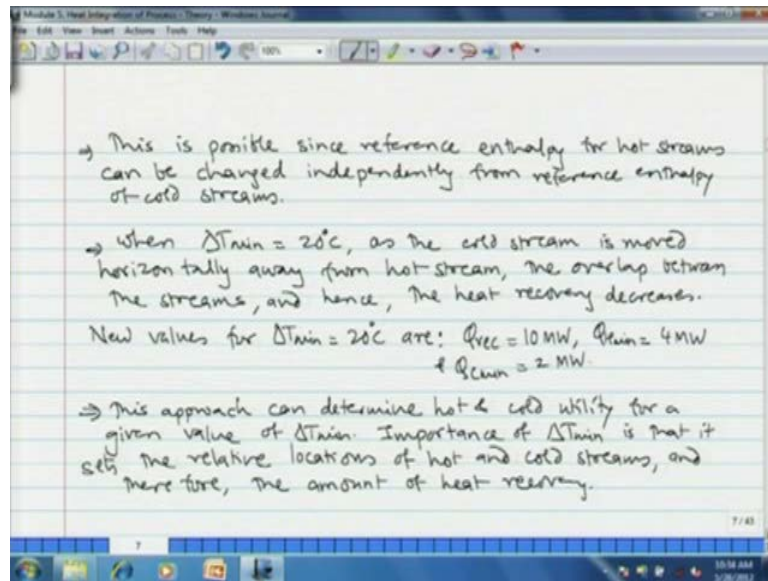 Module 5. Heat Integration of Process - Theory - Windows Journal
File Edit View Insert Actions Tools Help
100%
→ This is possible since reference enthalpy for hot streams
can be changed independently from reference enthalpy
of cold streams.
→ When ΔTmin = 20°C, as the cold stream is moved
horizontally away from hot stream, the overlap between
the streams, and hence, the heat recovery decreases.
New values for ΔTmin = 20°C are: QREC = 10 MW, QHmin = 4 MW
& QCmin = 2 MW.
⇒ This approach can determine hot & cold utility for a
given value of ΔTmin. Importance of ΔTmin is that it
sets the relative locations of hot and cold streams, and
therefore, the amount of heat recovery.
7/43
7
10:54 AM